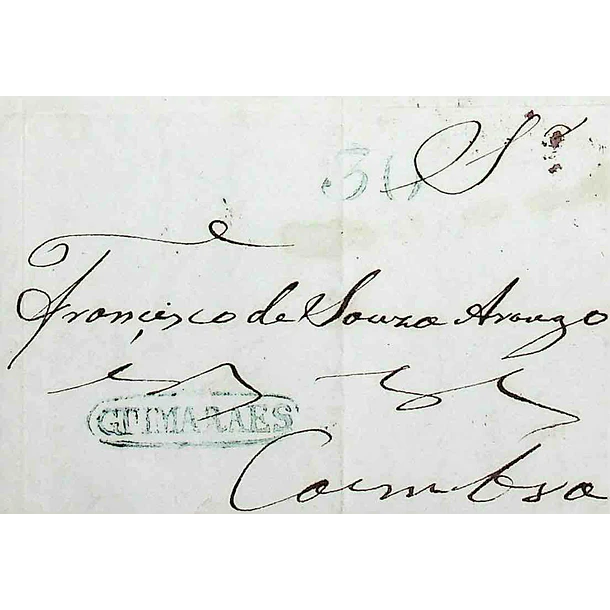 Sr
30
Francisco de Souza Araujo
GUIMARAES
Coimbra